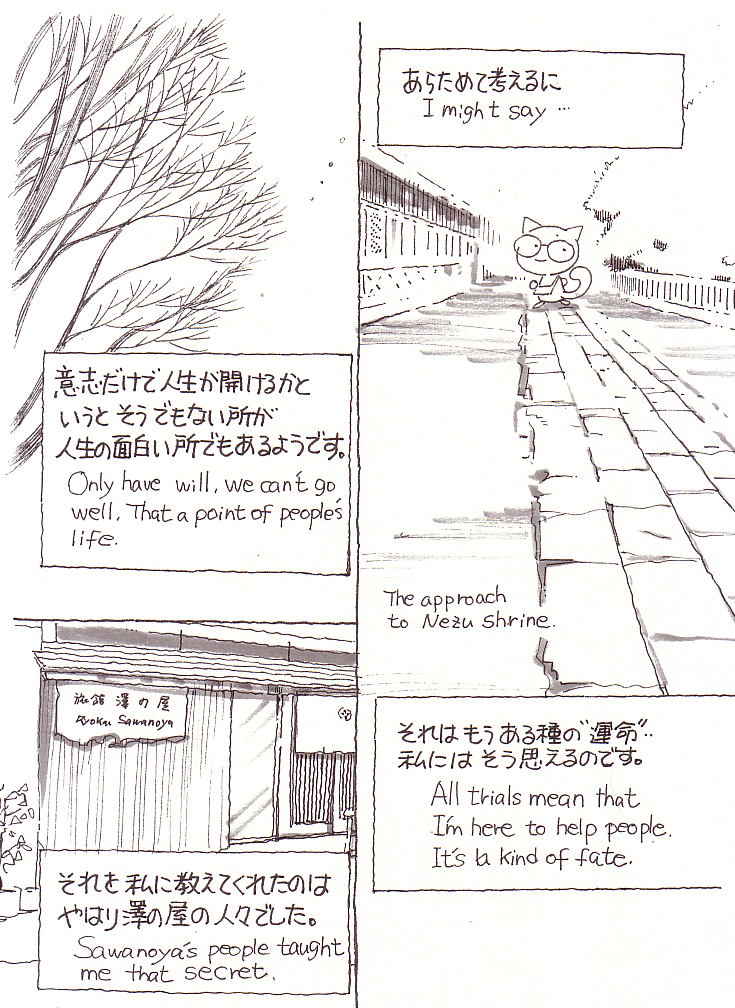 あらためて考えるに
I might say …
The approach
to Nezu shrine.
それはもうある種の"運命"‥
私にはそう思えるのです。
All trials mean that
I'm here to help people.
It's a kind of fate.
意志だけで人生が開けるかと
いうと そうでもない所が
人生の面白い所でもあるようです。
Only have will, we can't go
well. That a point of people's
life.
旅館 澤の屋
Ryokan Sawanoya
それを私に教えてくれたのは
やはり澤の屋の人々でした。
Sawanoya's people taught
me that secret.